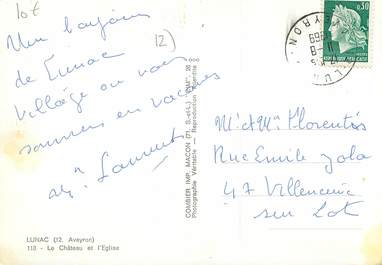 lot
(12)
Un bonjour
de Lunac
village où nous
sommes en vacances
Laurent
LUNAC (12. Aveyron)
113 - Le Château et l'Eglise
COMBIER IMP. MACON (71. S.-et-L.) "CIM"
Photographie Véritable - Reproduction Interdite
0,30
REPUBLIQUE FRANCAISE
AVEYRON
M. et Mme Florentis
Rue Emile Zola
47 Villeneuve
sur Lot